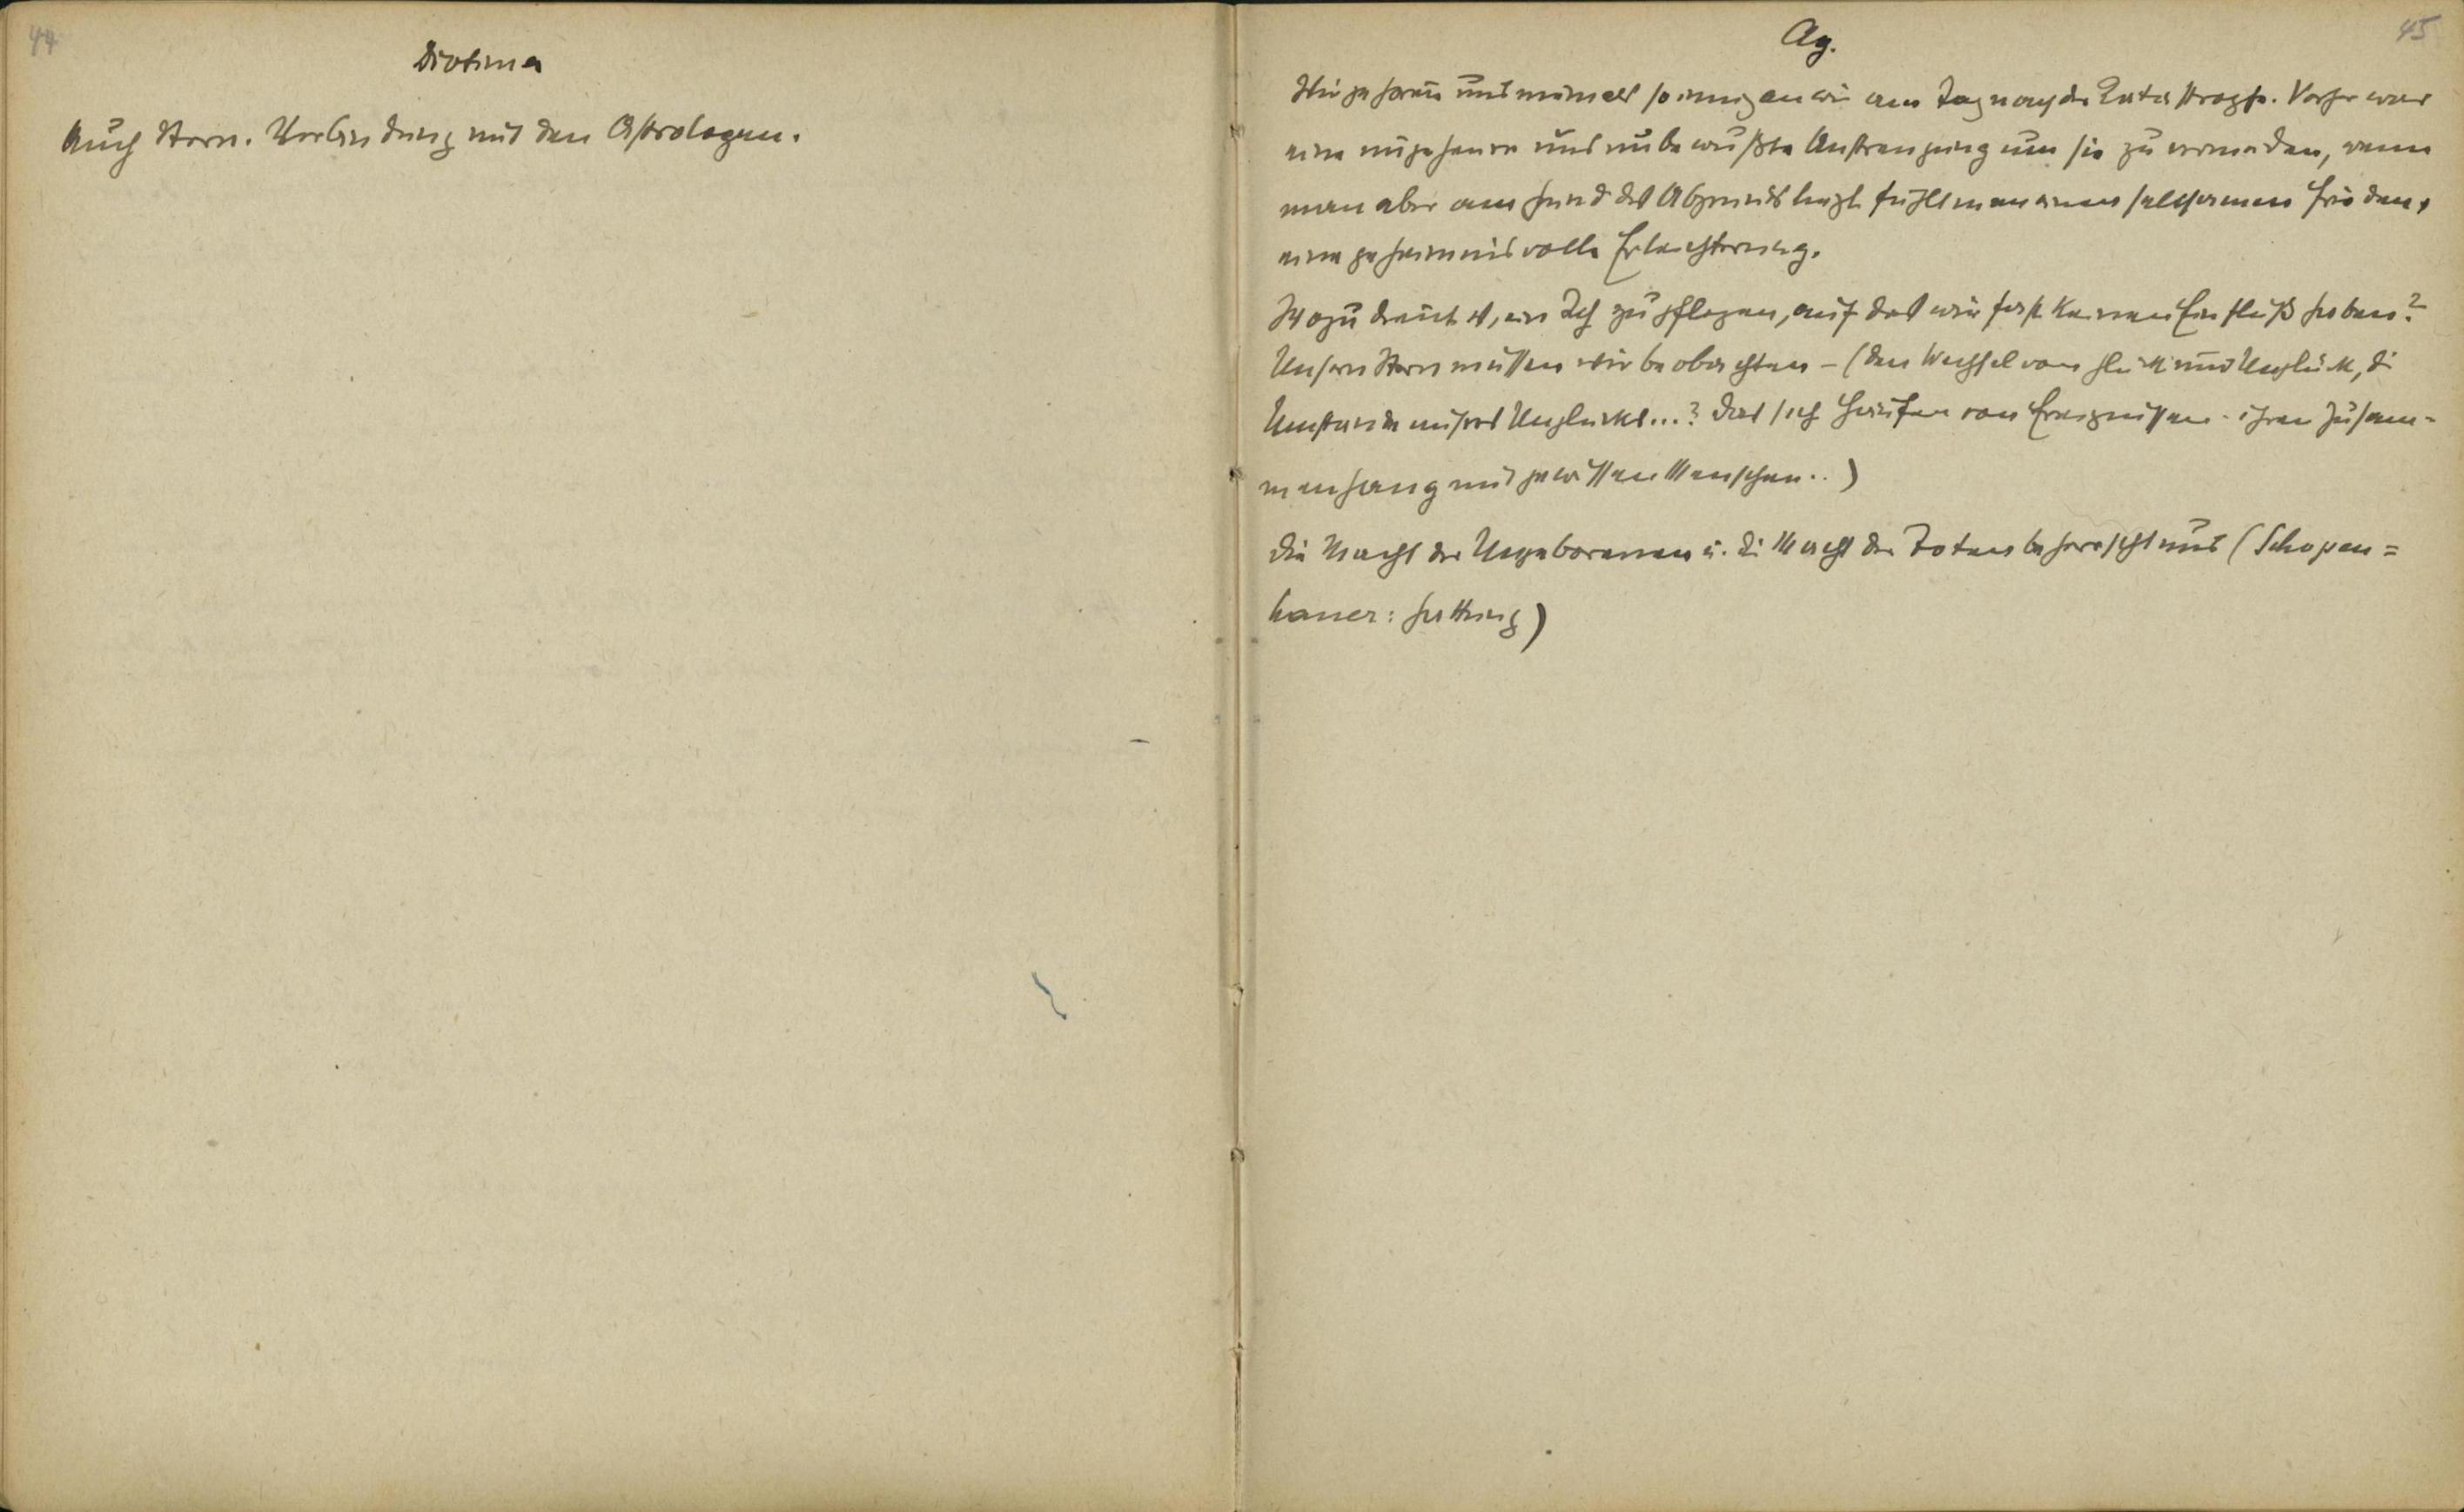 44
Diotima
Auch Stern. Verbindung mit den Astrologen.
45
Ag.
Wir gehören uns niemals so innig an wie am Tag nach der Katastrophe. Vorher war
eine ungeheure und unbewußte Anstrengung um sie zu vermeiden, wenn
man aber am Grund des Abgrunds liegt fühlt man einen seltsamen Frieden,
eine geheimnisvolle Erleichterung.
Wozu dient es, ein Ich zu pflegen, auf das wir fast keinen Einfluß haben?
Unsern Stern müssen wir beobachten – (den Wechsel von Glück und Unglück, di
Umstände unsres Unglücks...? das sich Häufen von Ereignissen - ihren Zusam-
menhang mit gewissen Menschen..)
Die Macht der Ungeborenen u. di Macht der Toten beherrscht uns (Schopen=
hauer: Gattung)